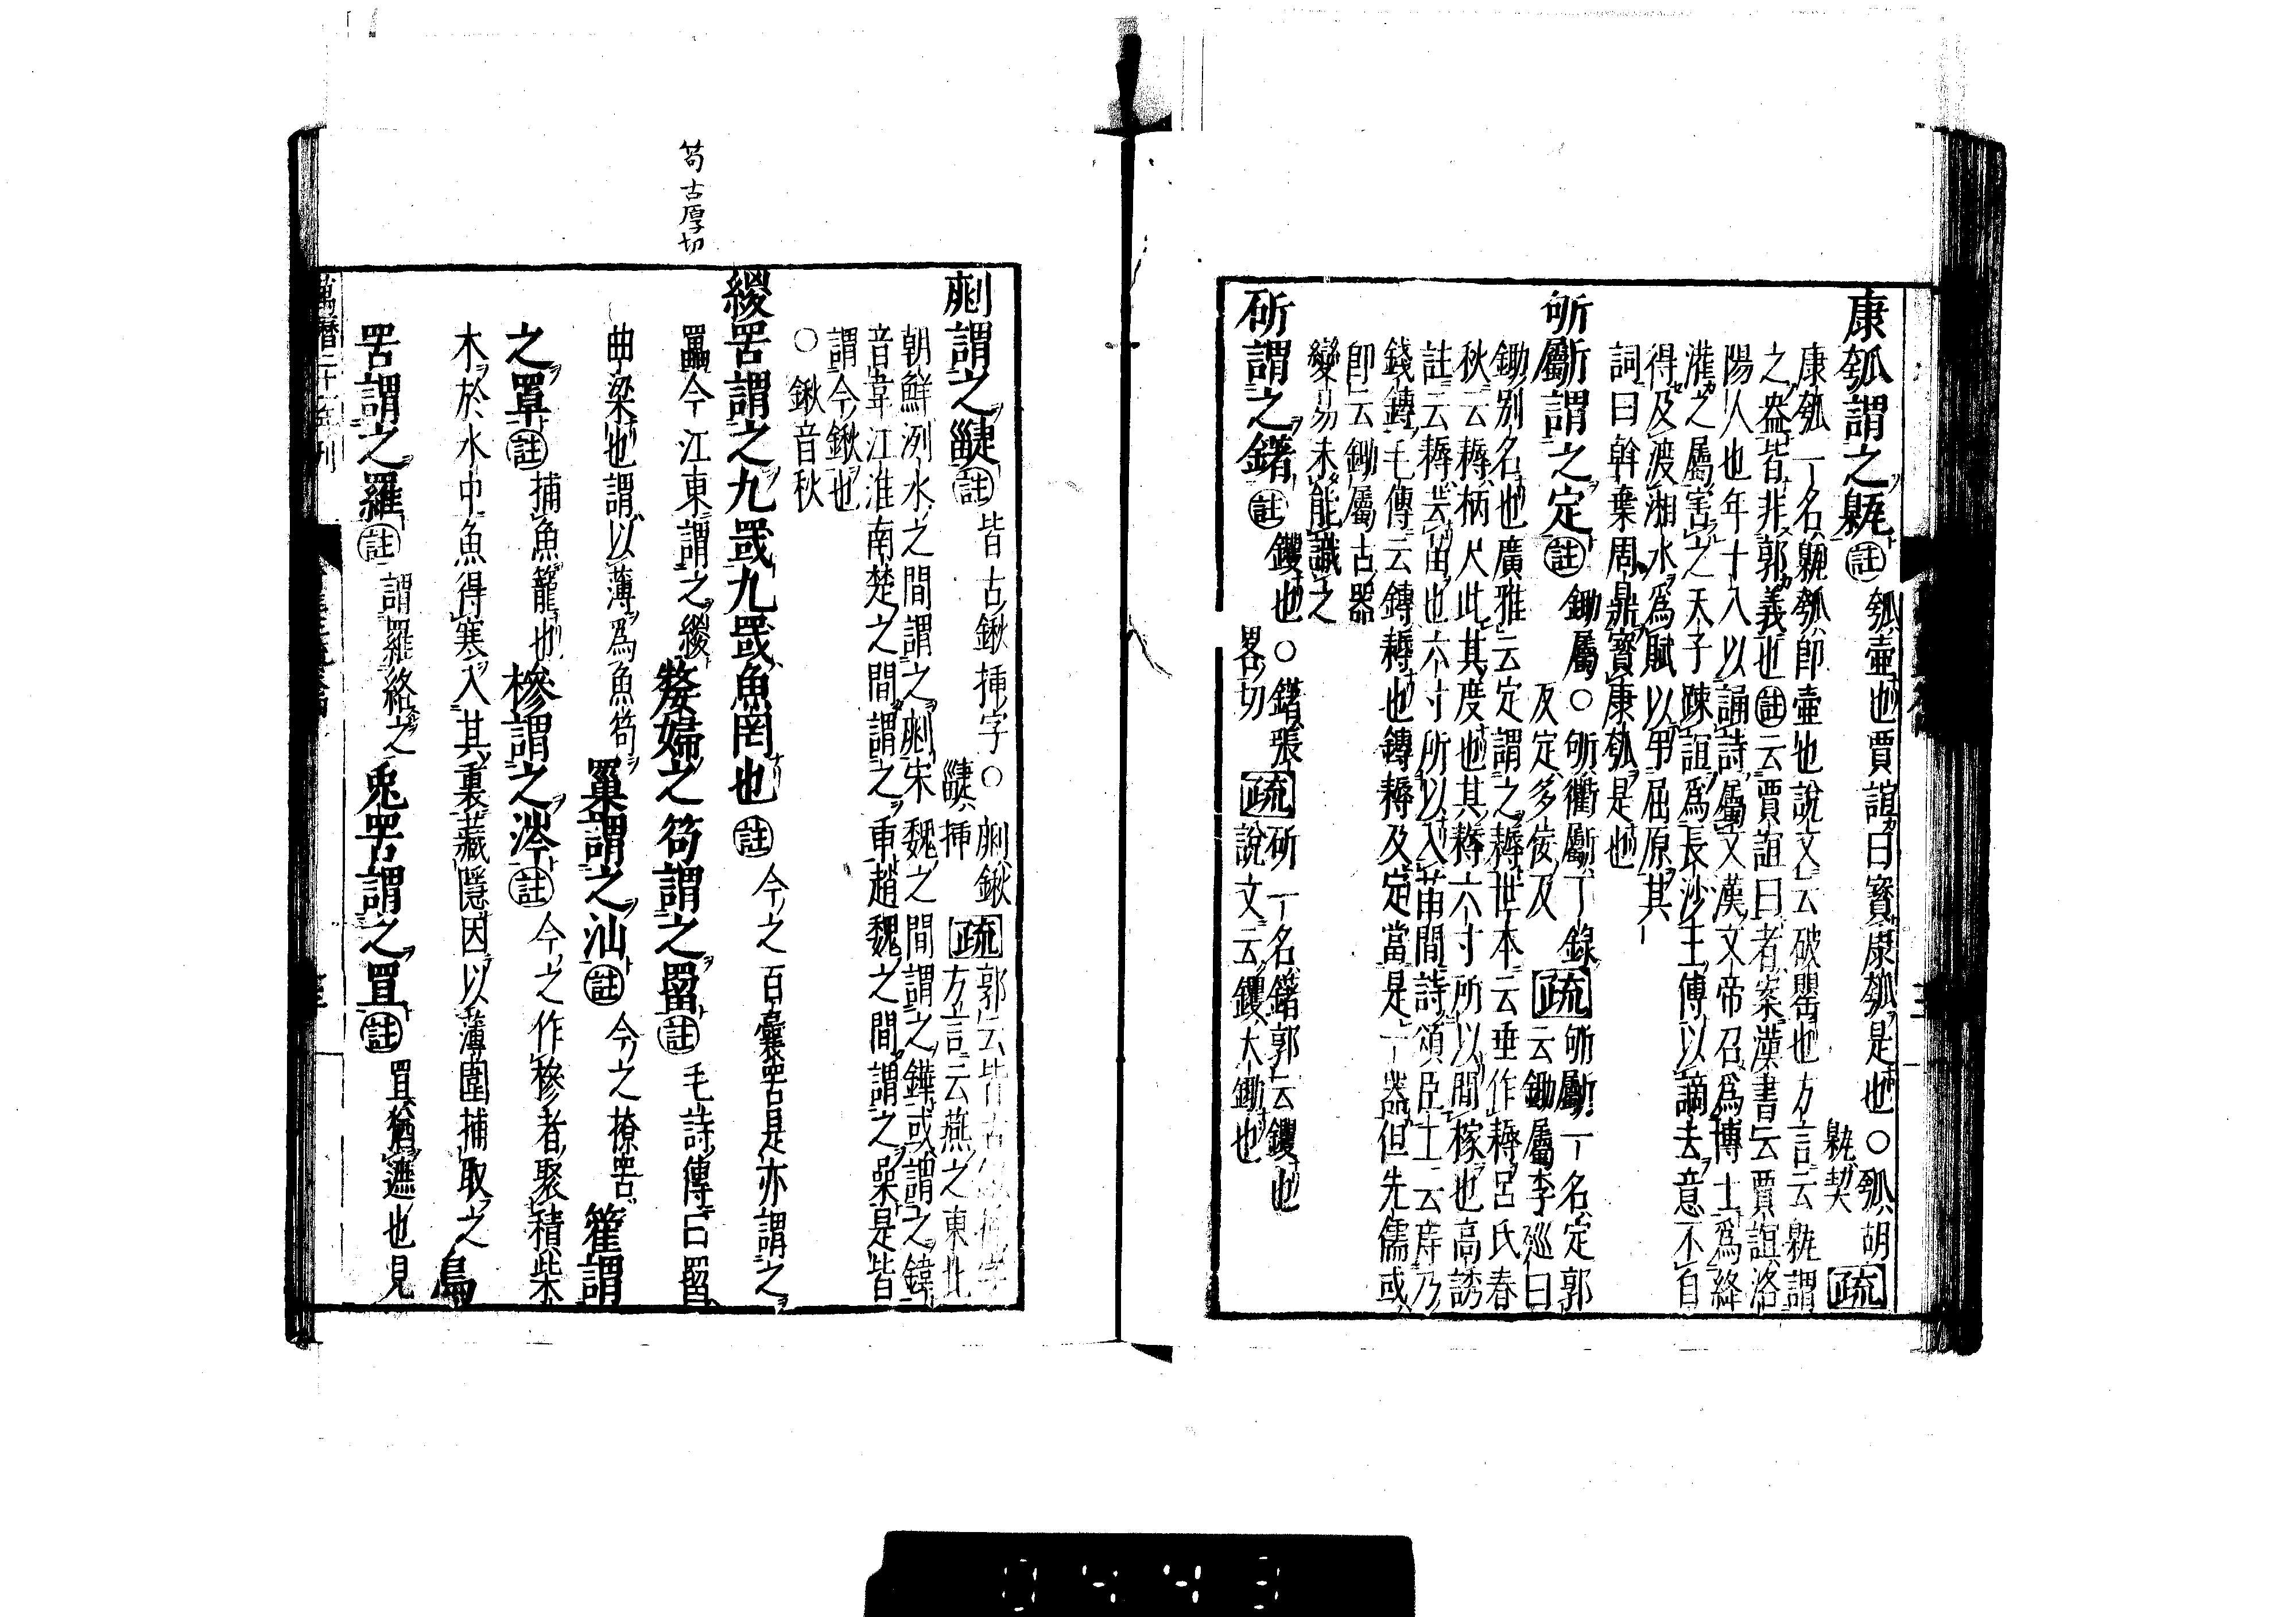 康瓠謂之甈註瓠壺也賈誼曰寶康瓠是也○瓠胡甈契疏
康瓠一名甈瓠即壺也說文云破罌也方言云甈謂
之盎皆非郭義也註云賈誼曰者案漢書云賈誼洛
陽人也年十八以誦詩屬文漢文帝召爲博士爲絳
灌之屬害之天子踈誼爲長沙王傅以謫去意不自
得及渡湘水爲賦以弔屈原其
詞曰斡棄周鼎寳康瓠是也
斪斸謂之定註鋤屬○斪衢斸丁錄反定多佞反疏斪斸一名定郭云鋤屬李廵曰
鋤別名也廣雅云定謂之耨世本云垂作耨呂氏春
秋云耨柄尺此其度也其耨六寸所以間稼也高誘
註云耨芸苗也六寸所以入苗間詩頌臣工云庤乃
錢鎛毛傳云鎛耨也鎛耨及定當是一器但先儒或
即云鋤屬古器
變易未能識之
斫謂之鐯註钁也○鐯張畧切疏斫一名鐯郭云钁也說文云钁大鋤也
㓨謂之疀註皆古鍬挿字○㓨鍬疀挿疏郭云皆古鍬挿字方言云燕之東北
朝鮮洌水之間謂之㓨宋魏之間謂之鏵或謂之鍏
音韋江淮南楚之間謂之臿趙魏之間謂之喿是皆
謂今鍬也
○鍬音秋
緵罟謂之九罭九罭魚罔也註今之百囊罟是亦謂之
䍡今江東謂之緵嫠婦之笱謂之罶註毛詩傳曰罶
曲梁也謂以薄爲魚笱罺謂之汕註今之撩罟篧謂
之罩註捕魚籠也槮謂之涔註今之作槮者聚積柴
木於水中魚得寒入其裏藏隱因以薄圍捕取之鳥
罟謂之羅註謂羅絡之兎罟謂之罝註罝猶遮也見
笱古厚切
萬曆二十一年刊
0443